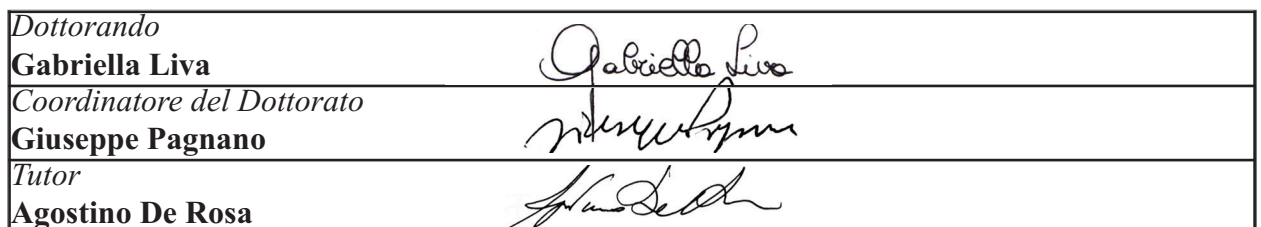 Dottorando
Gabriella Liva
Gabriella Liva
Coordinatore del Dottorato
Giuseppe Pagnano
Tutor
Agostino De Rosa